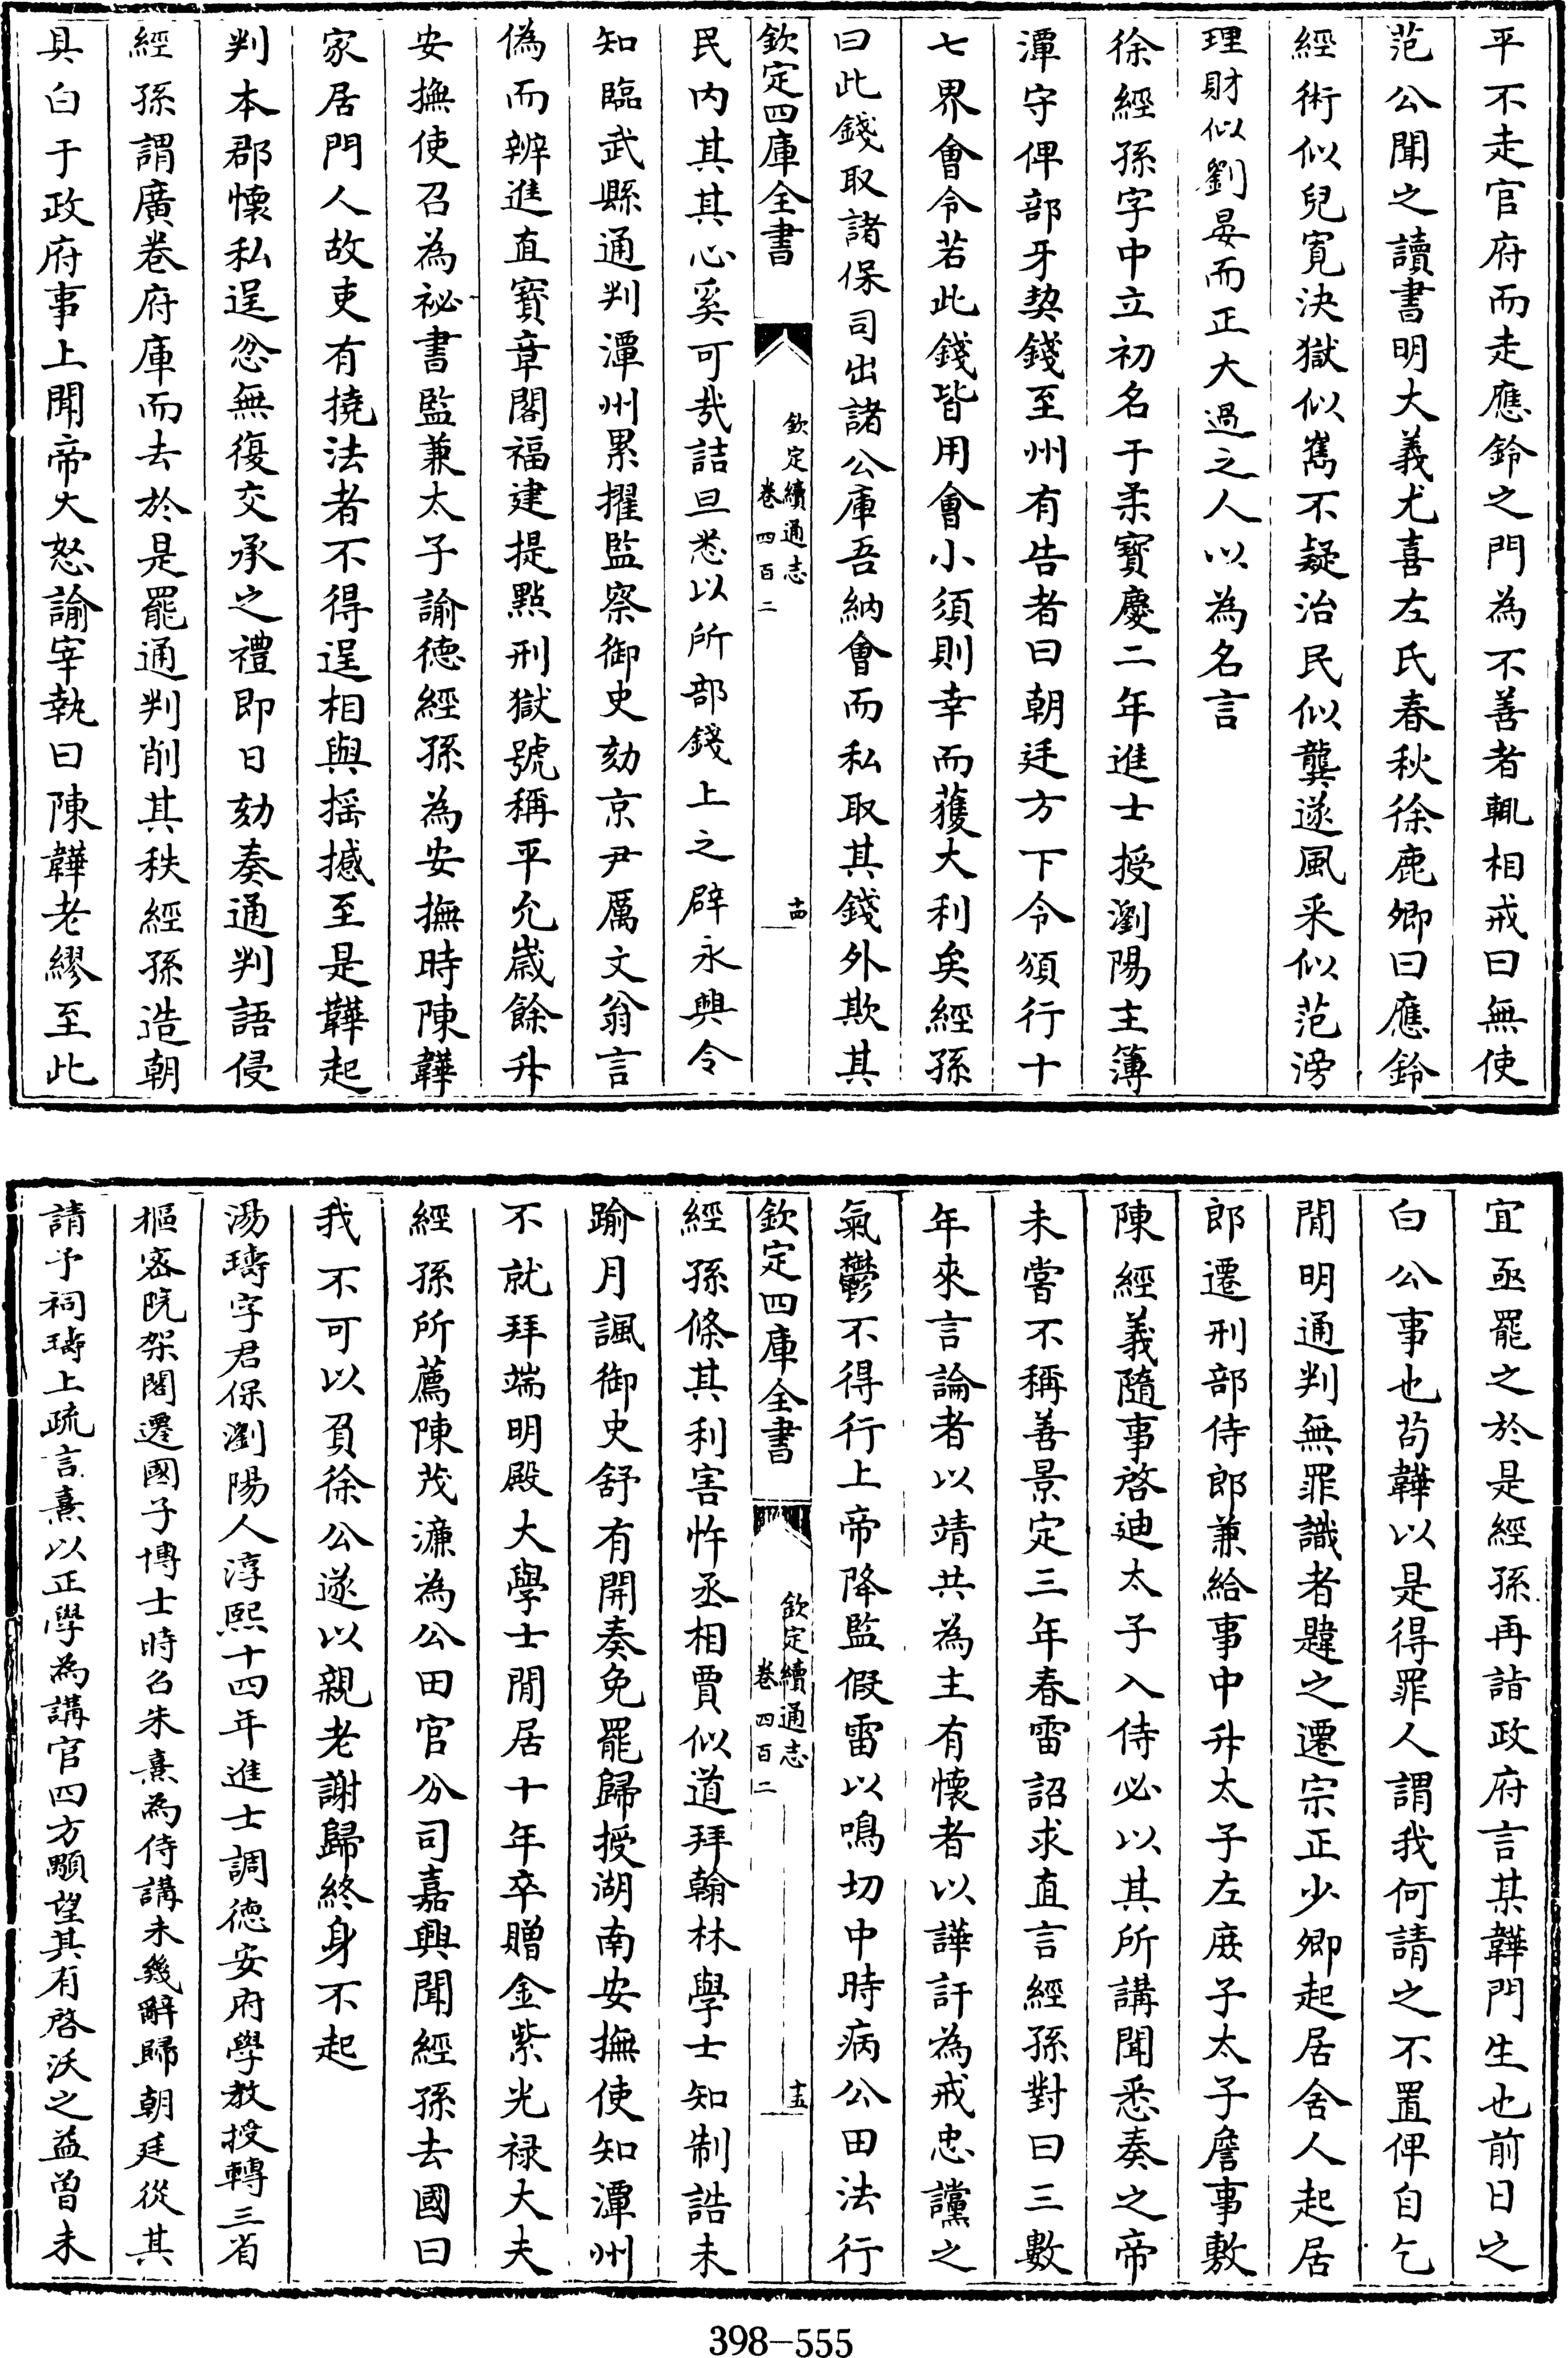 平不走官府而走應鈴之門為不善者輒相戒曰無使
范公聞之讀書明大義尤喜左氏春秋徐鹿卿曰應鈴
經術似兒寬決獄似雋不疑治民似龔遂風采似范滂
理財似劉晏而正大過之人以為名言
徐經孫字中立初名子柔寶慶二年進士授瀏陽主簿
潭守俾部牙契錢至州有告者曰朝廷方下令頒行十
七界會令若此錢皆用會小須則幸而獲大利矣經孫
曰此錢取諸保司出諸公庫吾納會而私取其錢外欺其
欽定四庫全書
欽定續通志
卷四百二
十四
民内其其心奚可哉詰旦悉以所部錢上之辟永興令
知臨武縣通判潭州累擢監察御史劾京尹厲文翁言
偽而辨進直寶章閣福建提點刑獄號稱平允歲餘升
安撫使召為祕書監兼太子諭德經孫為安撫時陳韡
家居門人故吏有撓法者不得逞相與摇撼至是韡起
判本郡懷私逞忿無復交承之禮即日劾奏通判語侵
經孫謂廣卷府庫而去於是罷通判削其秩經孫造朝
具白于政府事上聞帝大怒諭宰執曰陳韡老繆至此
宜亟罷之於是經孫再詣政府言某韡門生也前日之
白公事也茍韡以是得罪人謂我何請之不置俾自乞
閒明通判無罪識者韙之遷宗正少卿起居舍人起居
郎遷刑部侍郎兼給事中升太子左庶子太子詹事敷
陳經義隨事啓迪太子入侍必以其所講聞悉奏之帝
未嘗不稱善景定三年春雷詔求直言經孫對曰三數
年來言論者以靖共為主有懷者以譁訐為戒忠讜之
氣鬱不得行上帝降監假雷以鳴切中時病公田法行
欽定四庫全書
欽定續通志
卷四百二
十五
經孫條其利害忤丞相賈似道拜翰林學士知制誥未
踰月諷御史舒有開奏免罷歸授湖南安撫使知潭州
不就拜端明殿大學士閒居十年卒贈金紫光禄大夫
經孫所薦陳茂濂為公田官分司嘉興聞經孫去國曰
我不可以負徐公遂以親老謝歸終身不起
湯璹字君保瀏陽人淳熙十四年進士調德安府學教授轉三省
樞密院架閣遷國子博士時召朱熹為侍講未幾辭歸朝廷從其
請予祠璹上疏言熹以正學為講官四方顒望其有啓沃之益曾未
398—555